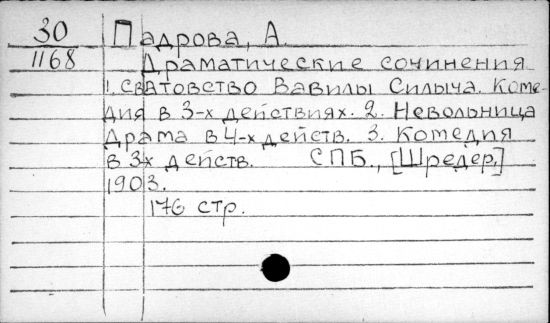 30 Падрова, А.
1168 Драматические сочинения
1. Сватовство Вавилы Силыча. Коме-
дия в 3-х действиях. 2. Невольница
Драма в 4-х действ. 3. Комедия
в 3х действ. СПБ., [Шредер,]
1903.
176 стр.